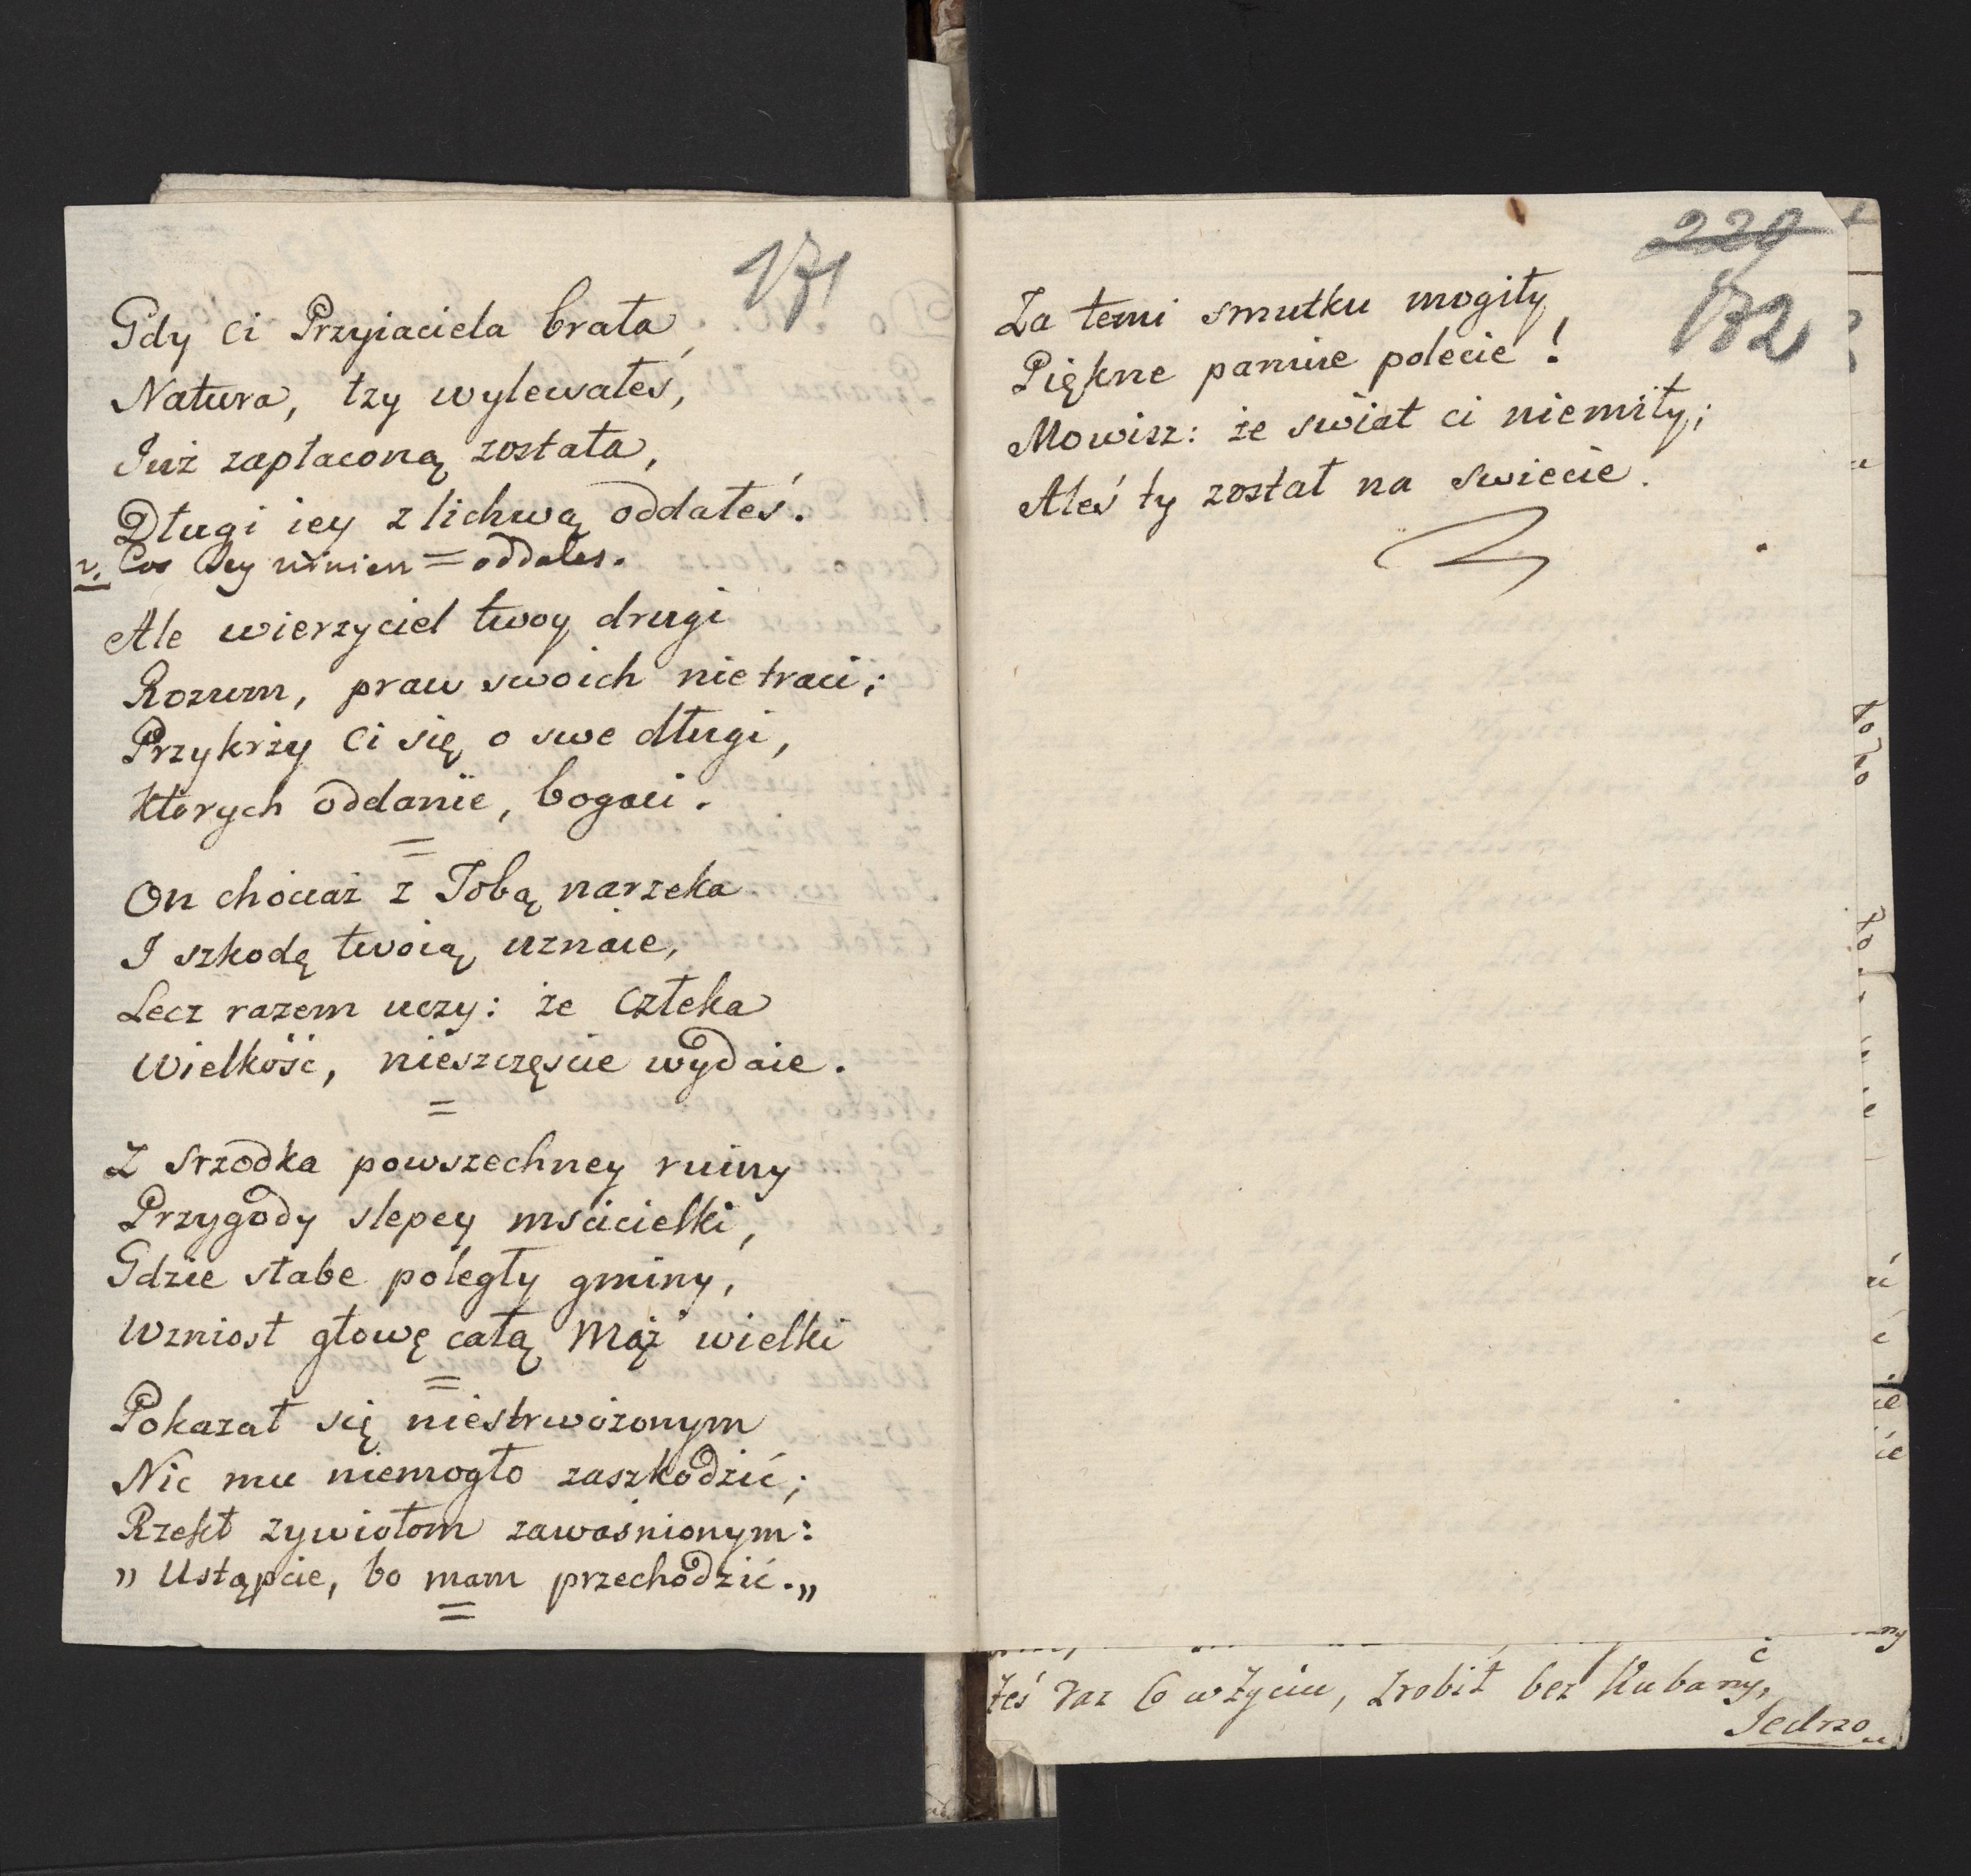 171
Gdy ci Przyiaciela brała
Natura, łzy wylewałeś,
Już zapłaconą została,
Długi iey z lichwą oddałeś.
v. Coś Jey winien = oddałeś.
Ale wierzyciel twoy drugi
Rozum, praw swoich nie traci;
Przykrzy ci się o swe długi,
Których oddanie, bogaci.
=
On chociaż z Tobą narzeka
I szkodę twoią uznaie,
Lecz razem uczy: że człeka
Wielkość, nieszczęście wydaie.
=
Z srzodka powszechney ruiny
Przygody slepey mścicielki,
Gdzie słabe poległy gminy,
Wzniosł głowę całą Mąż wielki
=
Pokazał się niestrwożonym
Nic mu niemogło zaszkodzić;
Rzekł zywiołom zawaśnionym:
„ Ustąpcie, bo mam przechodzić.„
=
220
172
Za temi smutku mogiły,
Piękne pamiie polecie!
Mowisz: że swiat ci niemiły;
Aleś ty został na swiecie.
żeś raz w życiu, zrobił bez Kubany,